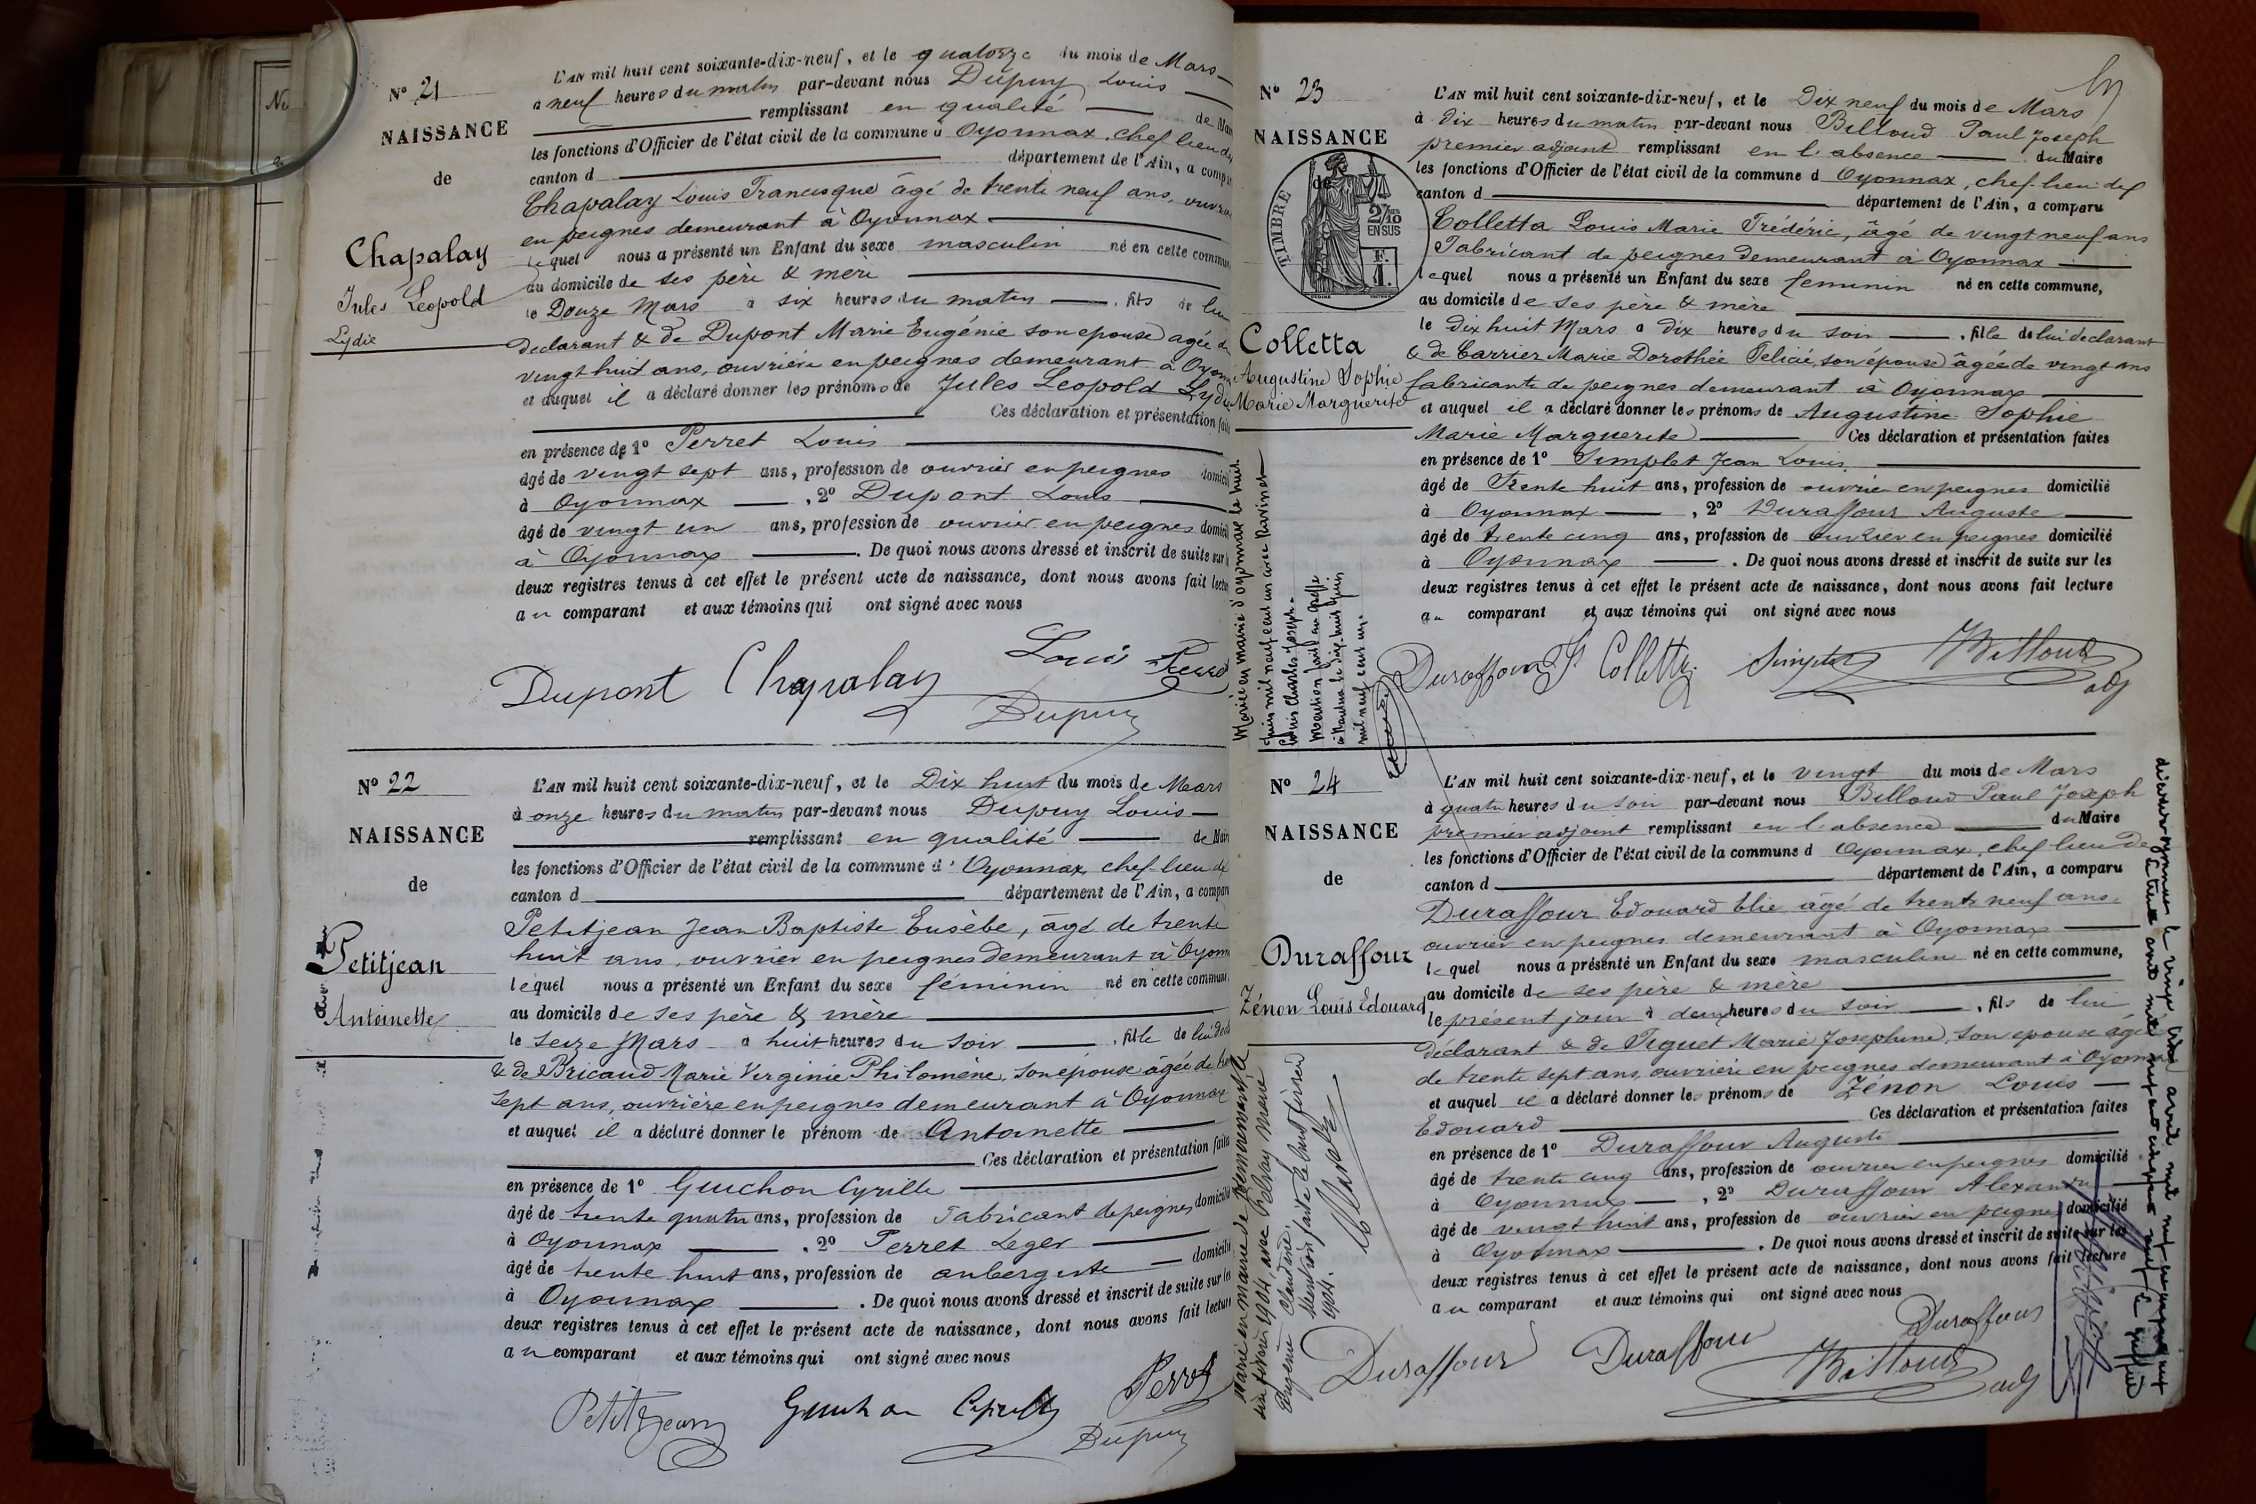 Nº 21
NAISSANCE
de
Chapalay
Jules Léopold
Lydie
L'AN mil huit cent soixante-dix-neuf, et le quatorze du mois de Mars
à neuf heures du matin par-devant nous Dupuy Louis
remplissant en qualité de
les fonctions d'Officier de l'état civil de la commune d Oyonnax, chef lieu de
canton d département de l'Ain, a
Chapalay Louis Francisque âgé de trente neuf ans,
en peignes demeurant à Oyonnax
lequel nous a présenté un Enfant du sexe masculin né en cette
au domicile de ses père & mère
le Douze Mars à six heures du matin , fils de lui
declarant & de Dupont Marie Eugénie son epouse agée de
vingt huit ans, ouvrière en peignes demeurant à
et auquel il a déclaré donner les prénoms de Jules Léopold
Ces déclaration et présentation
en présence de 1º Perret Louis
âgé de vingt sept ans, profession de ouvrier en peignes
à Oyonnax , 2º Dupont Louis
âgé de vingt un ans, profession de ouvrier en peignes
à Oyonnax . De quoi nous avons dressé et inscrit de suite sur
deux registres tenus à cet effet le présent acte de naissance, dont nous avons fait
au comparant et aux témoins qui ont signé avec nous
Louis Perret
Dupont Chapalay
Dupuy
Nº 22
NAISSANCE
de
Petitjean
Antoinette
L'AN mil huit cent soixante-dix-neuf, et le Dix huit du mois de Mars
à onze heures du matin par-devant nous Dupuy Louis
remplissant en qualité de
les fonctions d'Officier de l'état civil de la commune d'Oyonnax, chef-lieu de
canton d département de l'Ain, a
Petitjean Jean Baptiste Eusèbe, âgé de trente
huit ans, ouvrier en peignes demeurant à
lequel nous a présenté un Enfant du sexe féminin né en cette
au domicile de ses père & mère
le seize Mars à huit heures du soir , fille de lui
& de Bricaud Marie Virginie Philomène, son épouse âgée de
sept ans, ouvrière en peignes demeurant à Oyonnax
et auquel il a déclaré donner le prénom de Antoinette
Ces déclaration et présentation faites
en présence de 1º Guichon Cyrille
âgé de trente quatre ans, profession de Fabricant de peignes
à Oyonnax , 2º Perret Leger
âgé de trente huit ans, profession de aubergiste
à Oyonnax . De quoi nous avons dressé et inscrit de suite sur les
deux registres tenus à cet effet le présent acte de naissance, dont nous avons fait lecture
au comparant et aux témoins qui ont signé avec nous
Petitjean Guichon Cyrille Perret
Dupuy
Nº 23
NAISSANCE
de
TIMBRE
2/10
EN SUS
F.
1.
Colletta
Augustine Sophie
Marie Marguerite
L'AN mil huit cent soixante-dix-neuf, et le Dix neuf du mois de Mars
à dix heures du matin par-devant nous Billoud Paul Joseph
premier adjoint remplissant en l'absence du Maire
les fonctions d'Officier de l'état civil de la commune d Oyonnax, chef-lieu de
canton d département de l'Ain, a comparu
Colletta Louis Marie Frédéric, âgé de vingt neuf ans
Fabricant de peignes demeurant à Oyonnax
lequel nous a présenté un Enfant du sexe feminin né en cette commune,
au domicile de ses père & mère
le dix huit Mars à dix heures du soir , fille de lui declarant
& de Carrier Marie Dorothée Felicie, son épouse âgée de vingt ans
fabricante de peignes demeurant à Oyonnax
et auquel il a déclaré donner les prénoms de Augustine Sophie
Marie Marguerite Ces déclaration et présentation faites
en présence de 1º Simplet Jean Louis
âgé de Trente huit ans, profession de ouvrier en peignes domicilié
à Oyonnax , 2º Duraffour Auguste
âgé de trente cinq ans, profession de ouvrier en peignes domicilié
à Oyonnax . De quoi nous avons dressé et inscrit de suite sur les
deux registres tenus à cet effet le présent acte de naissance, dont nous avons fait lecture
au comparant et aux témoins qui ont signé avec nous
Mariée en mairie d'oyonnax le huit
Juin mil neuf cent un avec Ravinet
Louis Charles Joseph.
Mention faite au greffe
à Nantua le dix-huit Juin
mil neuf cent un.
Duraffour Colletta Simplet Billoud
adj
Nº 24
NAISSANCE
de
Duraffour
Zénon Louis Edouard
L'AN mil huit cent soixante-dix-neuf, et le vingt du mois de Mars
à quatre heures du soir par-devant nous Billoud Paul Joseph
premier adjoint remplissant en l'absence du Maire
les fonctions d'Officier de l'état civil de la commune d Oyonnax, chef lieu de
canton d département de l'Ain, a comparu
Duraffour Edouard Elie âgé de trente neuf ans,
ouvrier en peignes demeurant à Oyonnax
lequel nous a présenté un Enfant du sexe masculin né en cette commune,
au domicile de ses père & mère
le présent jour à deux heures du soir , fils de lui
déclarant & de Tiguet Marie Josephine, son epouse âgée
de trente sept ans, ouvrière en peignes demeurant à Oyonnax
et auquel il a déclaré donner les prénoms de Zénon Louis
Edouard Ces déclaration et présentation faites
en présence de 1º Duraffour Auguste
âgé de trente cinq ans, profession de ouvrier en peignes domicilié
à Oyonnax , 2º Duraffour Alexandre
âgé de vingt huit ans, profession de ouvrier en peignes domicilié
à Oyonnax . De quoi nous avons dressé et inscrit de suite sur les
deux registres tenus à cet effet le présent acte de naissance, dont nous avons fait lecture
au comparant et aux témoins qui ont signé avec nous
Marié en mairie de
février 1904, avec Pelnay Marie
Eugénie Claudine.
Mention faite le huit février
1904.
Duraffour Duraffour Duraffour
Billoud adj